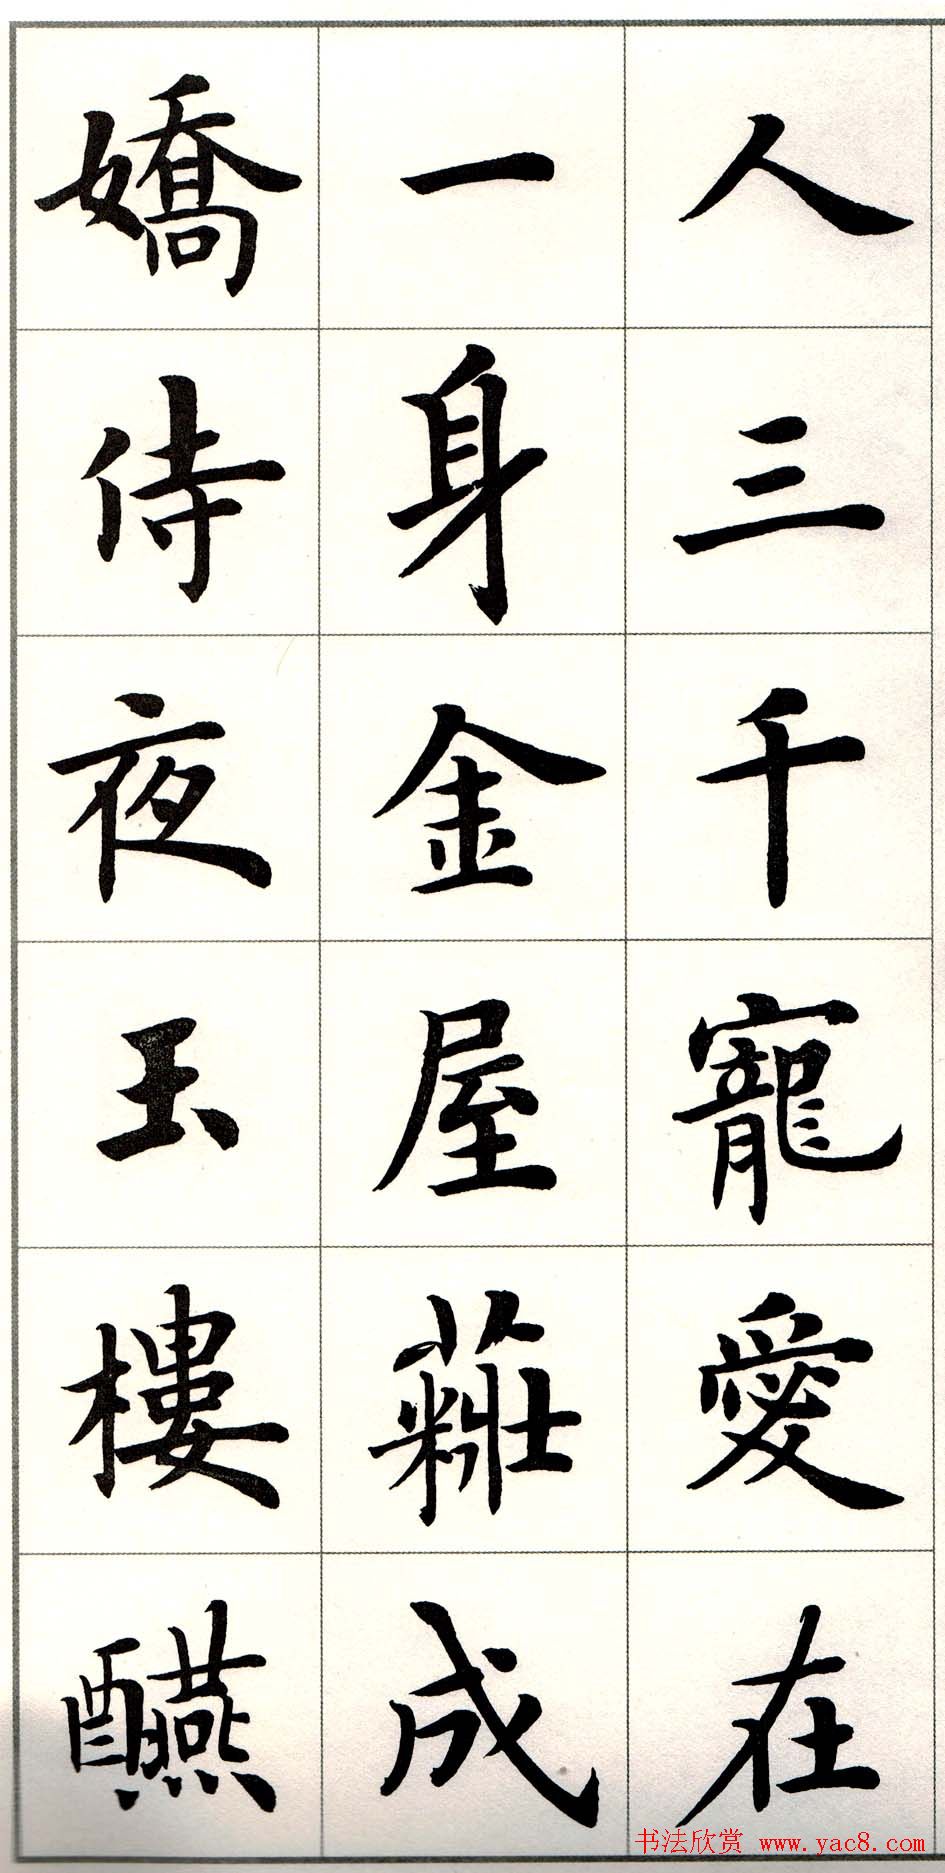 人三千寵愛在
一身金屋糚成
嬌侍夜玉樓醼
书法欣赏 www.yac8.com